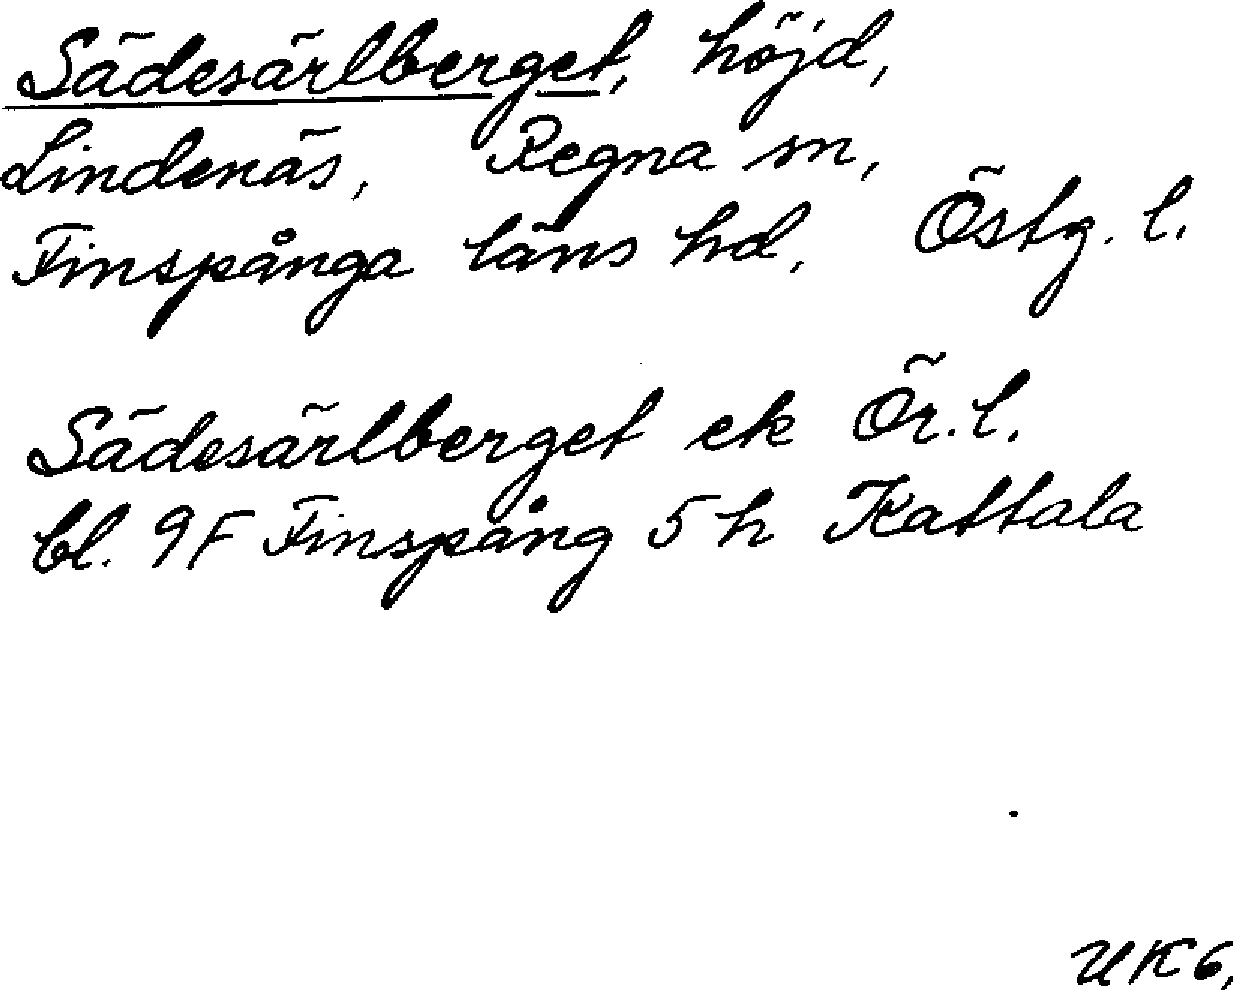 Sädesärlberget, höjd,
Lindenäs, Regna sn,
Finspånga läns hd, Östg. l.
Sädesärlberget ek Ör. l.
bl. 9F Finspång 5 h Kattala